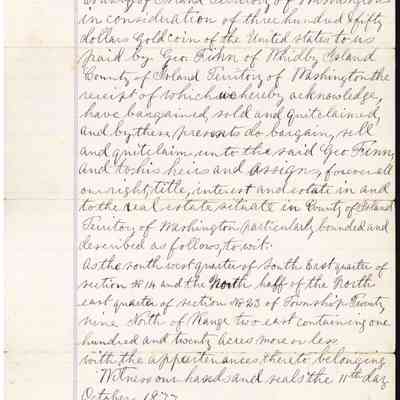 County of Island Territory of Washington
in consideration of three hundred & fifty
dollars Gold coin of the United states to us
paid by Geo. Finn of Whidby Island
County of Island Territory of Washington the
receipt of which we hereby acknowledge,
have bargained, sold and quitclaimed,
and by these presents do bargain, sell
and quitclaim unto the said Geo Finn,
and to his heirs and assigns, forever all
our right, title, interest and estate in and
to the real estate situate in County of Island
Territory of Washington particularly bounded and
described as follows, to wit:
As the south west quarter of South East quarter of
section No 14 and the North half of the North
east quarter of section No 23 of Township Twenty
nine North of Range two east containing one
hundred and twenty acres more or less
with the appertenances, thereto belonging
Witness our hands and seals the 11th day
October 1877